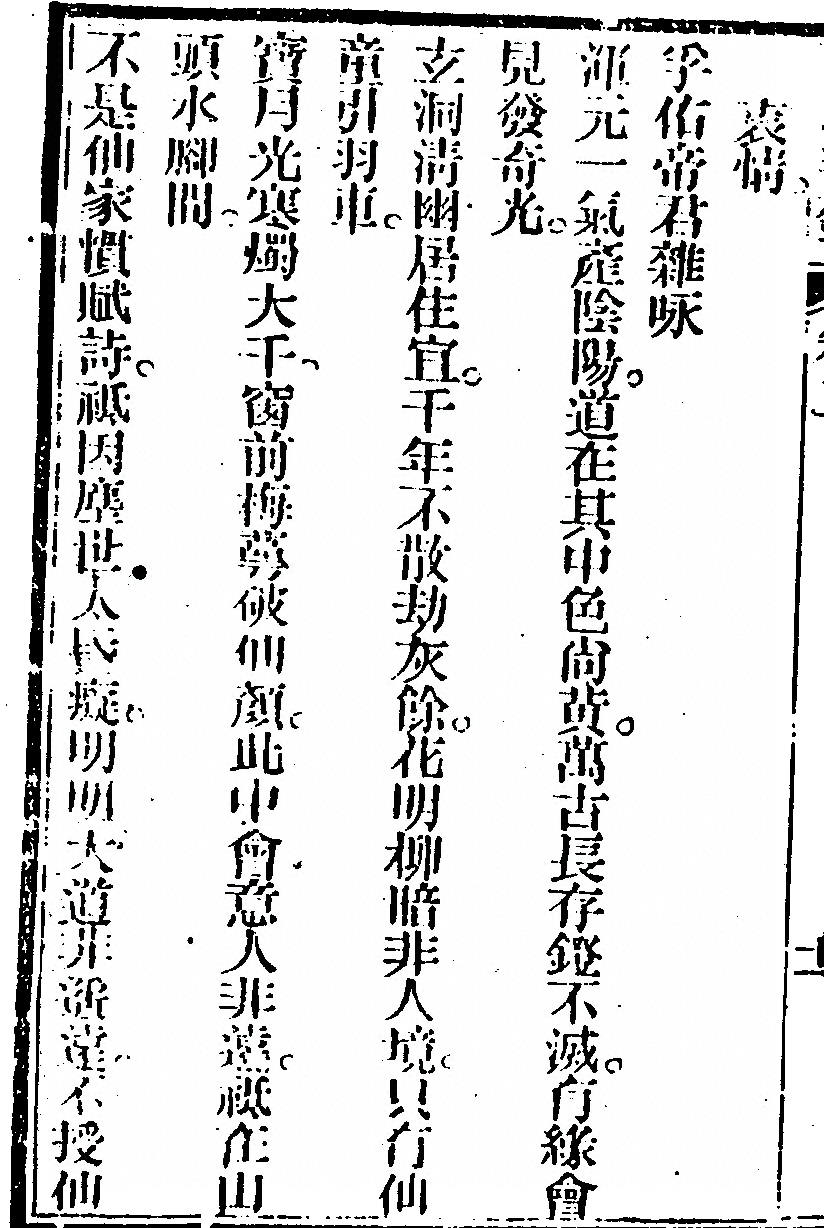 衷情
孚佑帝君雜咏
渾元一氣產陰陽。道在其中色尚黃。萬古長存鐙不滅。有緣會
見發奇光。
玄洞淸幽居住宜。千年不散劫灰餘。花明柳暗非人境。只有仙
童引羽車。
寶月光寒燭大千。窗前梅萼破仙顏。此中會意人非遠。祗在山
頭水腳間。
不是仙家慣賦詩。祗因塵世太昏癡。明明大道非新違。不授仙